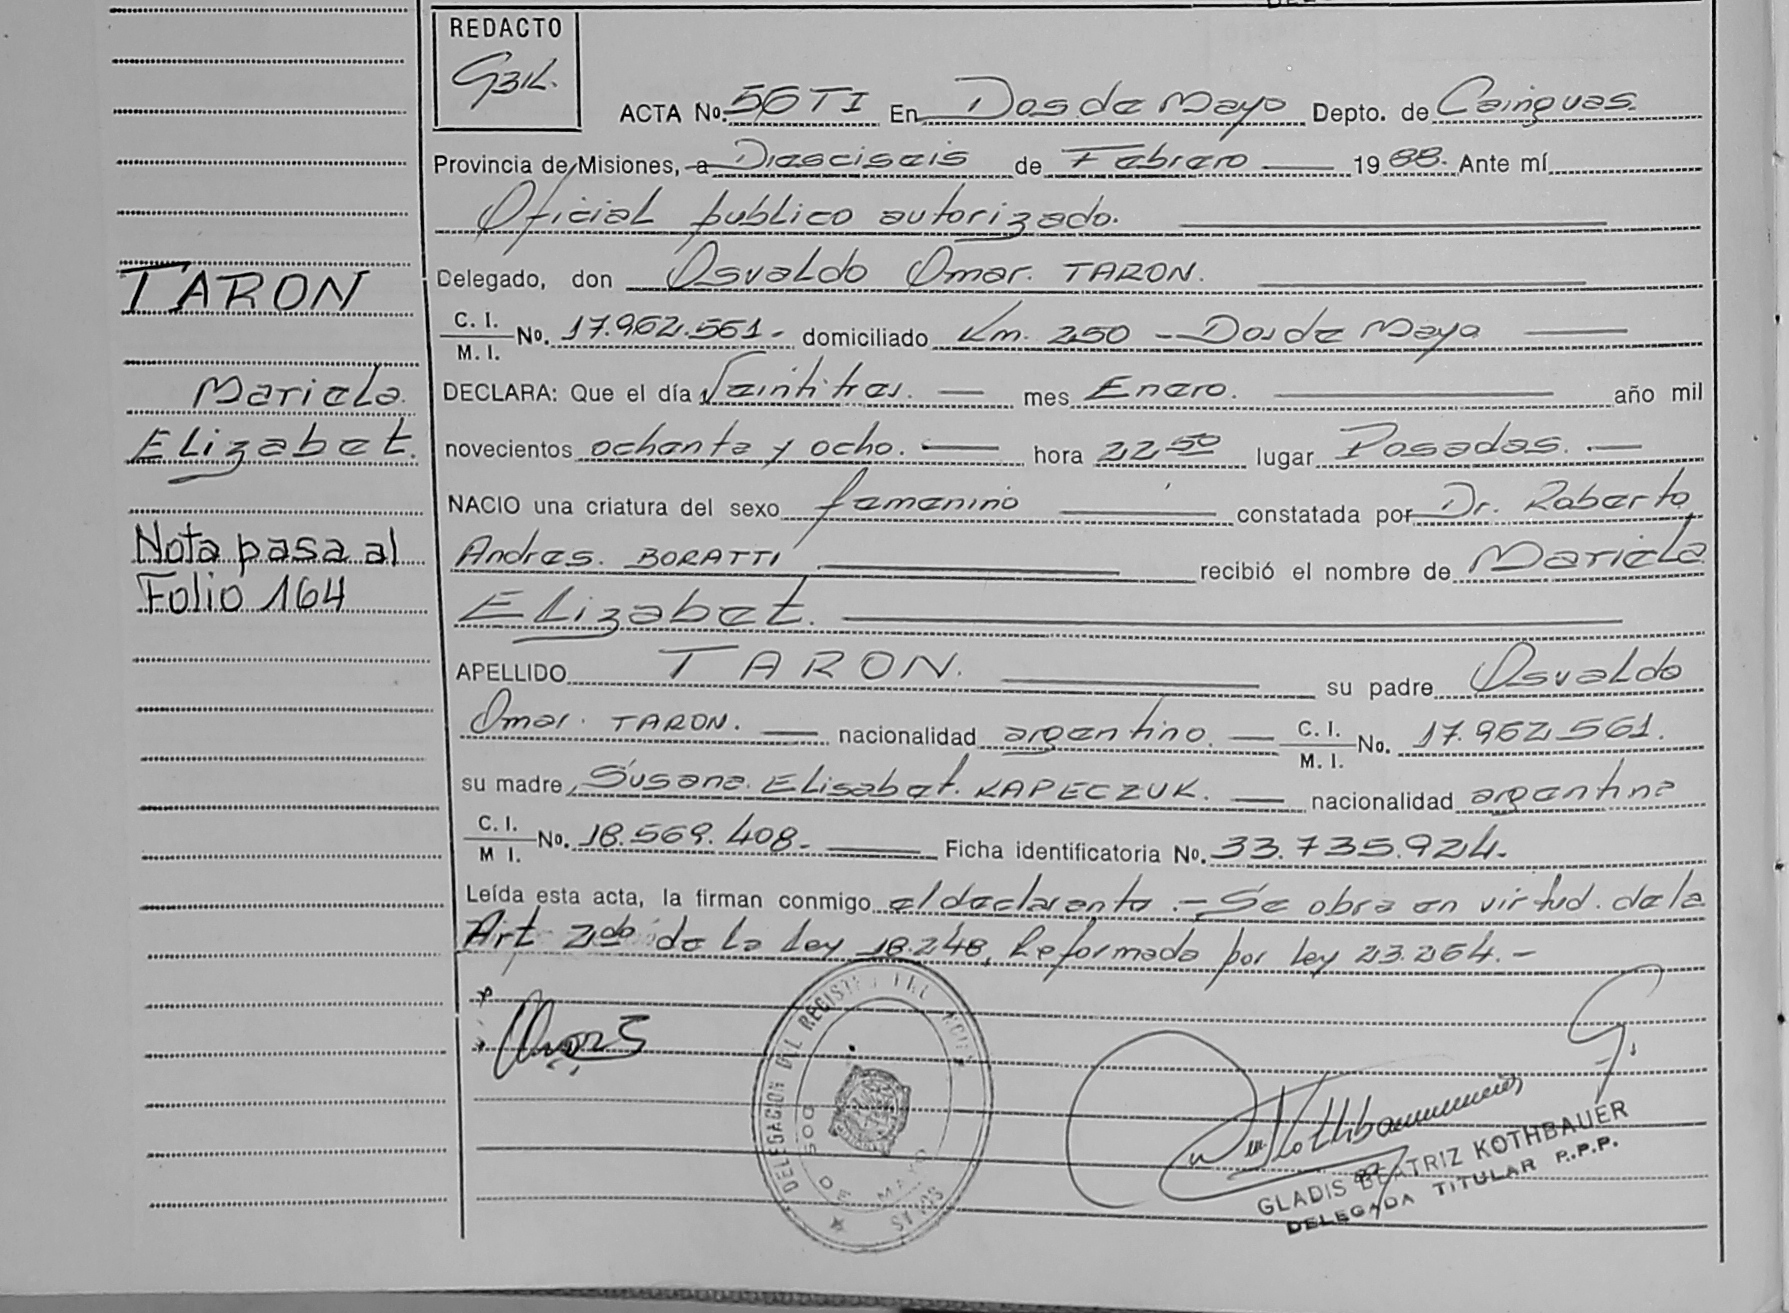 REDACTO
GBK.
ACTA No. 56TI En Dos de Mayo Depto. de Cainguas.
Provincia de Misiones, a Dieciseis de Febrero 1988. Ante mí
Oficial publico autorizado.
Delegado, don Osvaldo Omar. TARON.
C. I. / M. I. No. 17.962.561.- domiciliado Km. 250 - Dos de Mayo
DECLARA: Que el día Veintitres. mes Enero. año mil
novecientos ochenta y ocho. hora 22 50 lugar Posadas.
NACIO una criatura del sexo femenino constatada por Dr. Roberto
Andres. BORATTI recibió el nombre de Mariela
Elizabet.
APELLIDO TARON. su padre Osvaldo
Omar. TARON. nacionalidad argentino. C. I. / M. I. No. 17.962.561.
su madre, Susana. Elisabet. KAPECZUK. nacionalidad argentina
C. I. / M I. No. 18.569.408.- Ficha identificatoria No. 33.735.924.-
Leída esta acta, la firman conmigo el declarante.- Se obra en virtud. de la
Art 2do de la Ley 18.248, Reformada por Ley 23.264.-
TARON
Mariela.
Elizabet.
Nota pasa al
Folio 164
DELEGACION DEL REGISTRO
DOS DE MAYO
GLADIS BEATRIZ KOTHBAUER
DELEGADA TITULAR R.P.P.